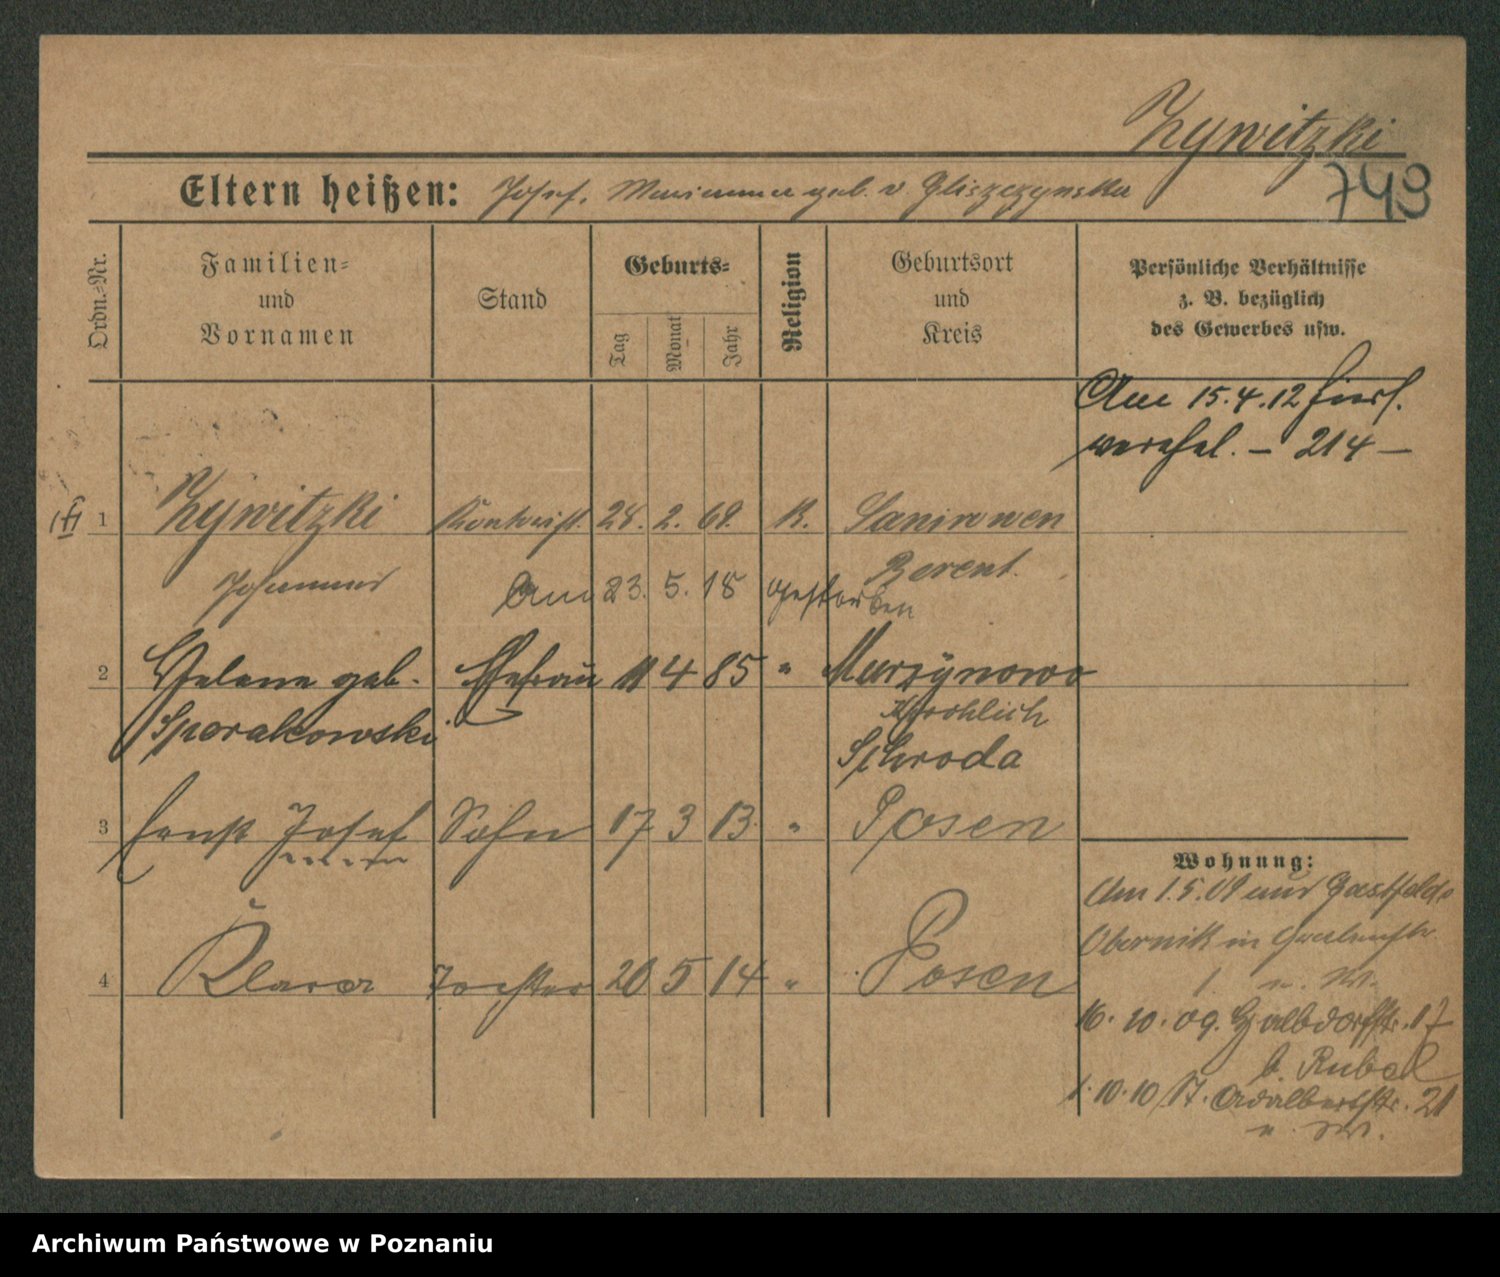 Zywitzki
749
Eltern heißen: Josef, Marianna geb. v Gliszczynska
Ordn.-Nr.
Familien-
und
Vornamen
Stand
Geburts-
Tag
Monat
Jahr
Religion
Geburtsort
und
Kreis
Persönliche Verhältnisse
z. B. bezüglich
des Gewerbes usw.
Am 15.4.12 hiers.
verehel. - 214 -
1 Zywitzki 28. 2. 69. K.
Johannes
Berent.
Am 23. 5. 18 gestorben
2 Helene geb. Ehefrau 11 4 85 " Murzynowo
Sporakowski
Schroda
3 Ernst Josef Sohn 17 3 13. " Posen
4 Klara Tochter 20 5 14 " Posen
Wohnung:
Am 1.5.09 aus
Obernik in
1 u. W.
16. 10. 09. 17
b. Rubel
1.10.10 Adalbertstr. 21
u. W.
Archiwum Państwowe w Poznaniu